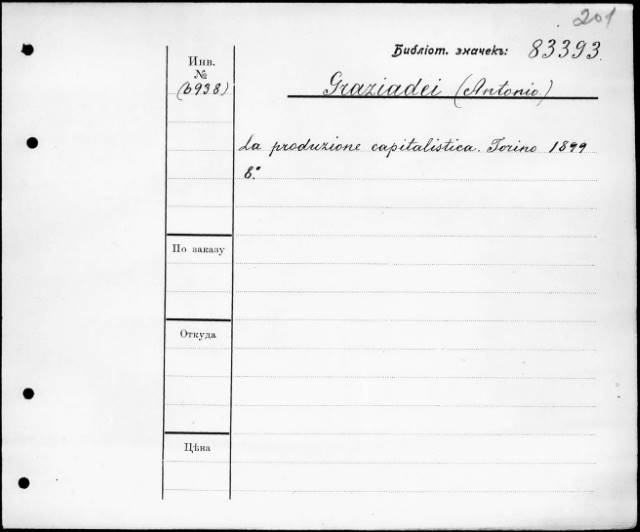 201
Библіот. значекъ: 83393.
Инв.
№
(6938)
Graziadei (Antonio.)
La produzione capitalistica. Torino 1899
8.°
По заказу
Откуда
Цѣна